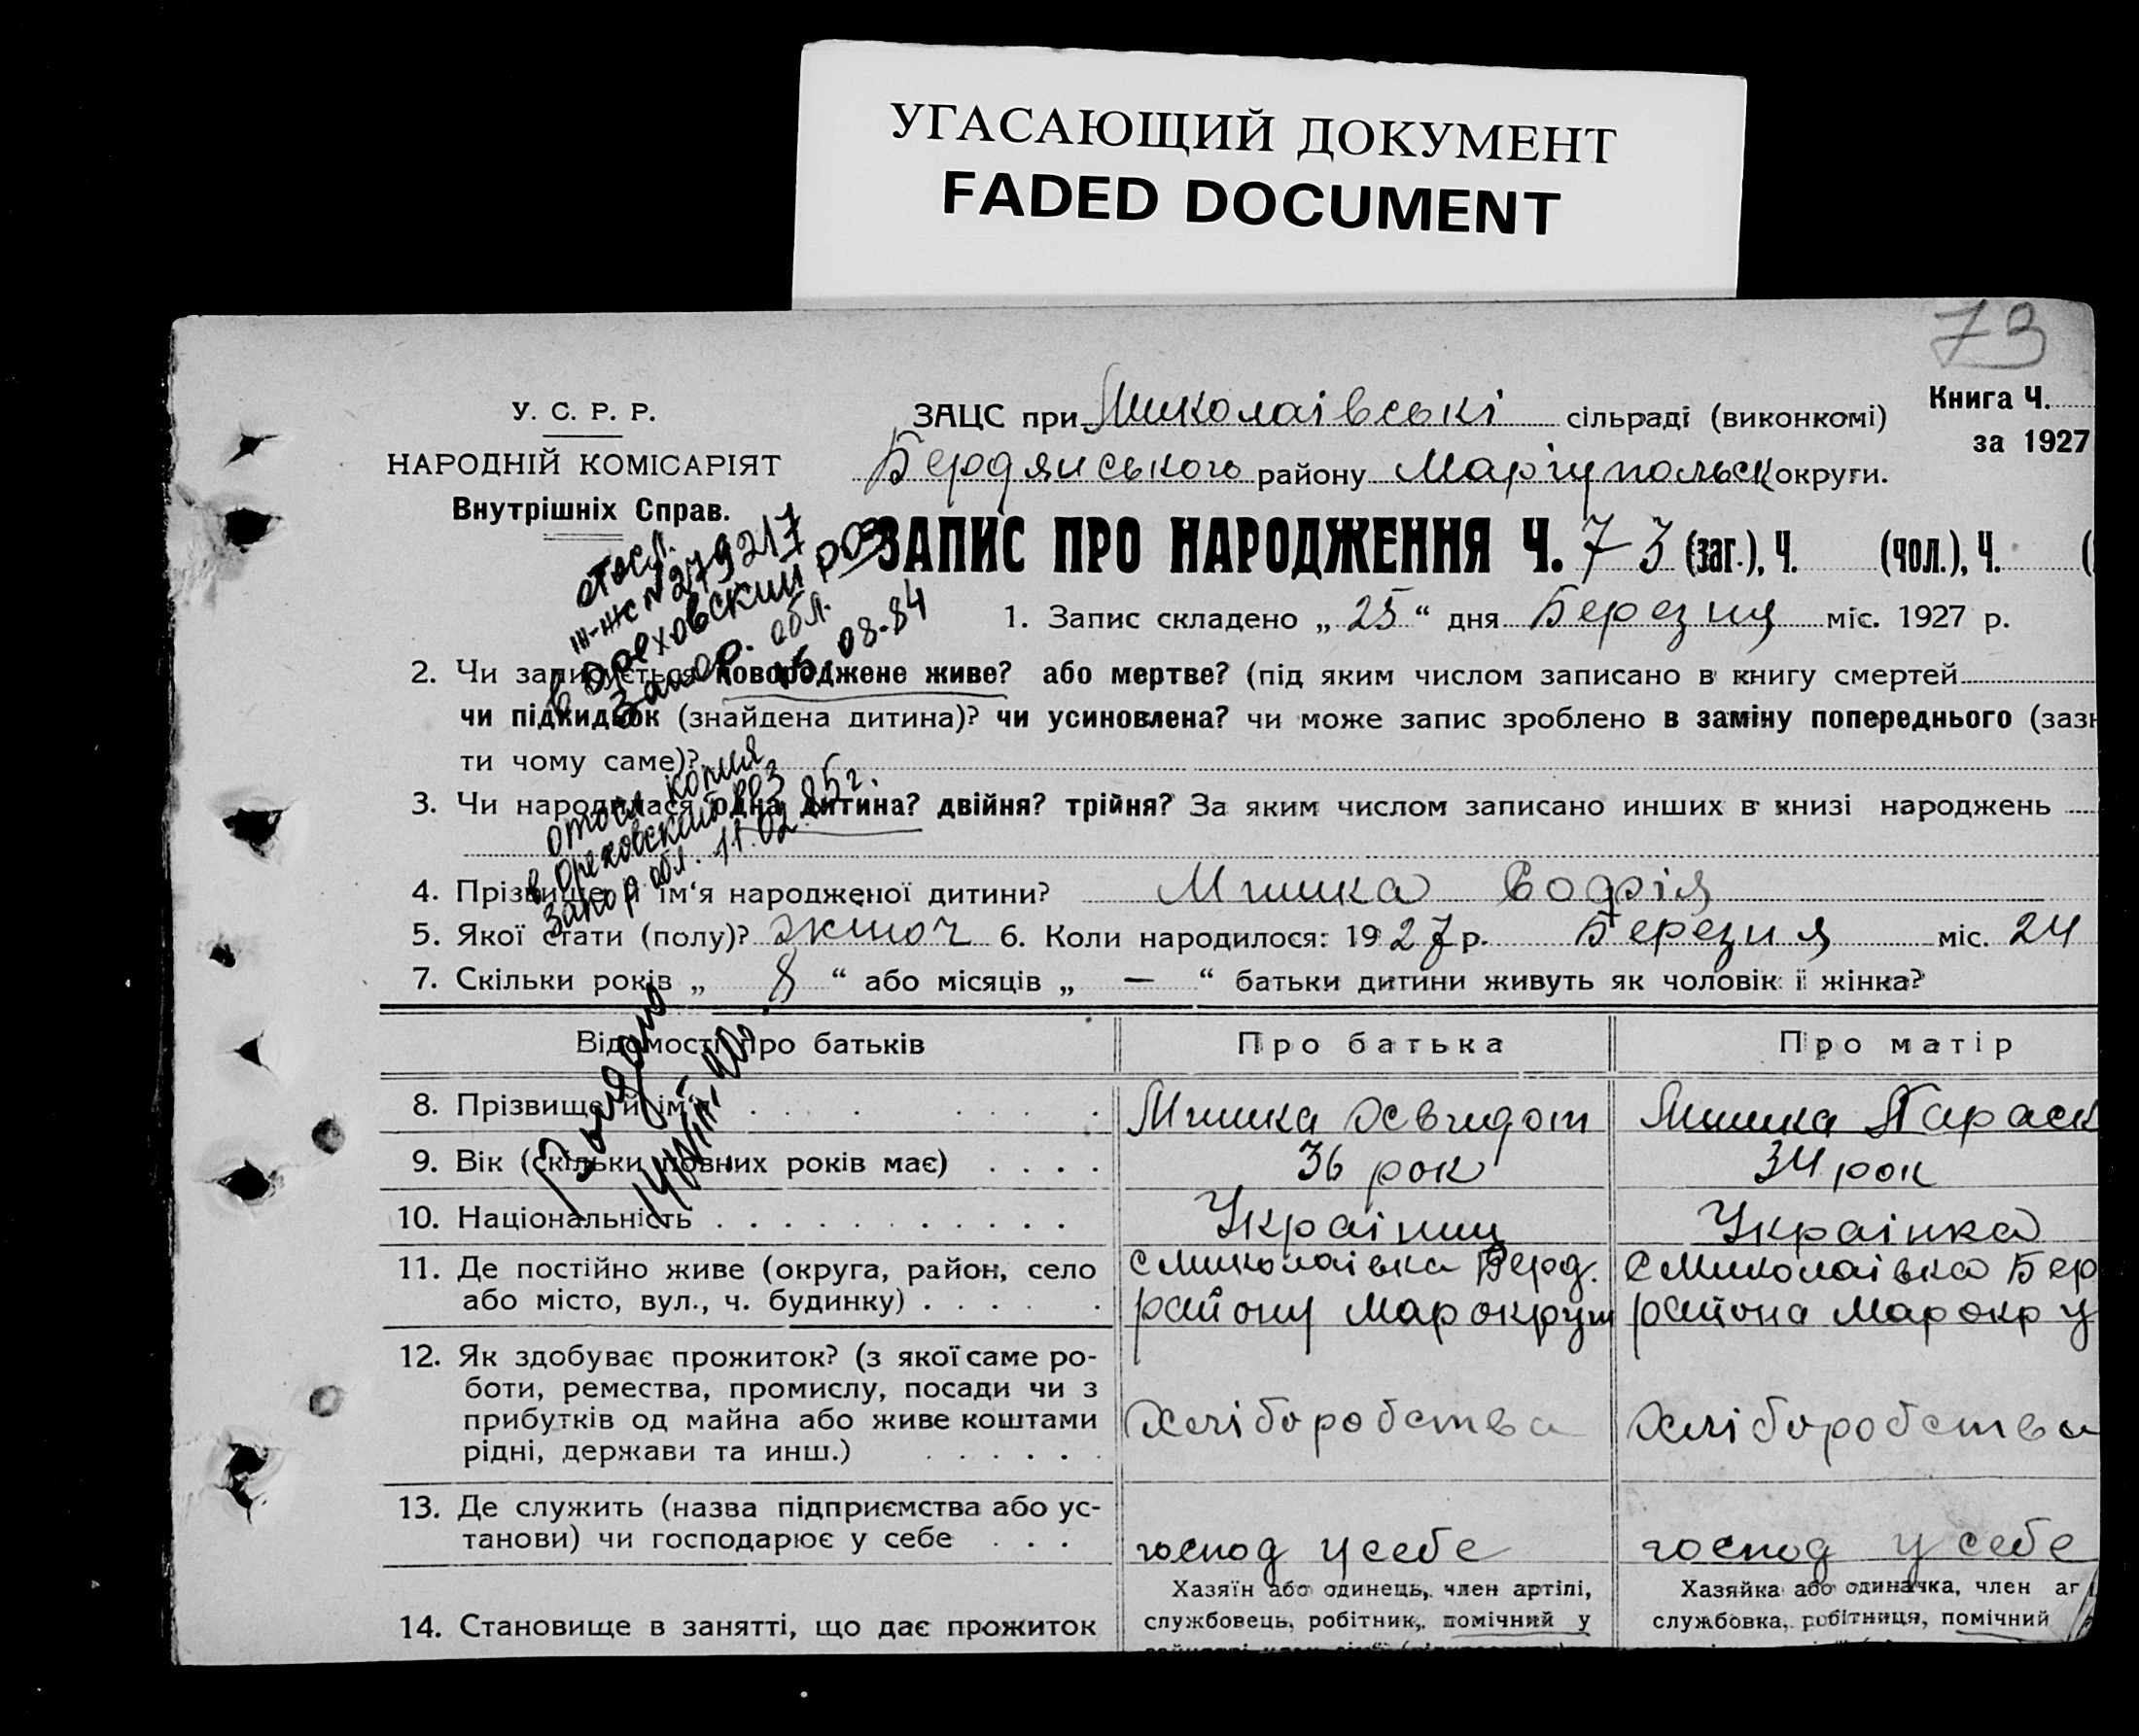 УГАСАЮЩИЙ ДОКУМЕНТ
FADED DOCUMENT
73
У. С. Р. Р.
НАРОДНІЙ КОМІСАРІЯТ
Внутрішніх Справ.
ЗАЦС при Миколаівські сільраді (виконкомі)
Книга Ч.
за 1927
Бердянського району Маріупольск округи.
ЗАПИС ПРО НАРОДЖЕННЯ Ч. 73 (заг.), Ч. (чол.), Ч. (
отосл.
№ 279217
в Ореховский РОЗ
Запор. обл.
16.08-84
1. Запис складено „ 25 “ дня Березня міс. 1927 р.
2. Чи записується новороджене живе? або мертве? (під яким числом записано в книгу смертей
чи підкидьок (знайдена дитина)? чи усиновлена? чи може запис зроблено в заміну попереднього (зазн
ти чому саме)?
3. Чи народилася одна дитина? двійня? трійня? За яким числом записано инших в книзі народжень
отосл. копия
в Ореховский РОЗ
Запор. обл. 11.02.85г.
4. Прізвище й ім‘я народженої дитини? Мишка Софія
5. Якої стати (полу)? жіноч 6. Коли народилося: 1927 р. Березня міс. 24
7. Скільки років „ 8 “ або місяців „ — “ батьки дитини живуть як чоловік і жінка?
Видано
Відомості про батьків Про батька Про матір
8. Прізвище й ім'я Мишка Мишка Параск
9. Вік (скільки повних років має) 36 рок 34 рок
10. Національність Українц Українка
11. Де постійно живе (округа, район, село
або місто, вул., ч. будинку)
с Миколаівка Берд.
району Мар округи
с Миколаівка Бер
района Мар окру
12. Як здобуває прожиток? (з якої саме ро-
боти, ремества, промислу, посади чи з
прибутків од майна або живе коштами
рідні, держави та инш.)
Хліборобства
Хліборобства
13. Де служить (назва підприємства або ус-
танови) чи господарює у себе
господ у себе
господ у себе
14. Становище в занятті, що дає прожиток
Хазяїн або одинець, член артілі,
службовець, робітник, помічний у
Хазяйка або одиначка, член ар
службовка, робітниця, помічний